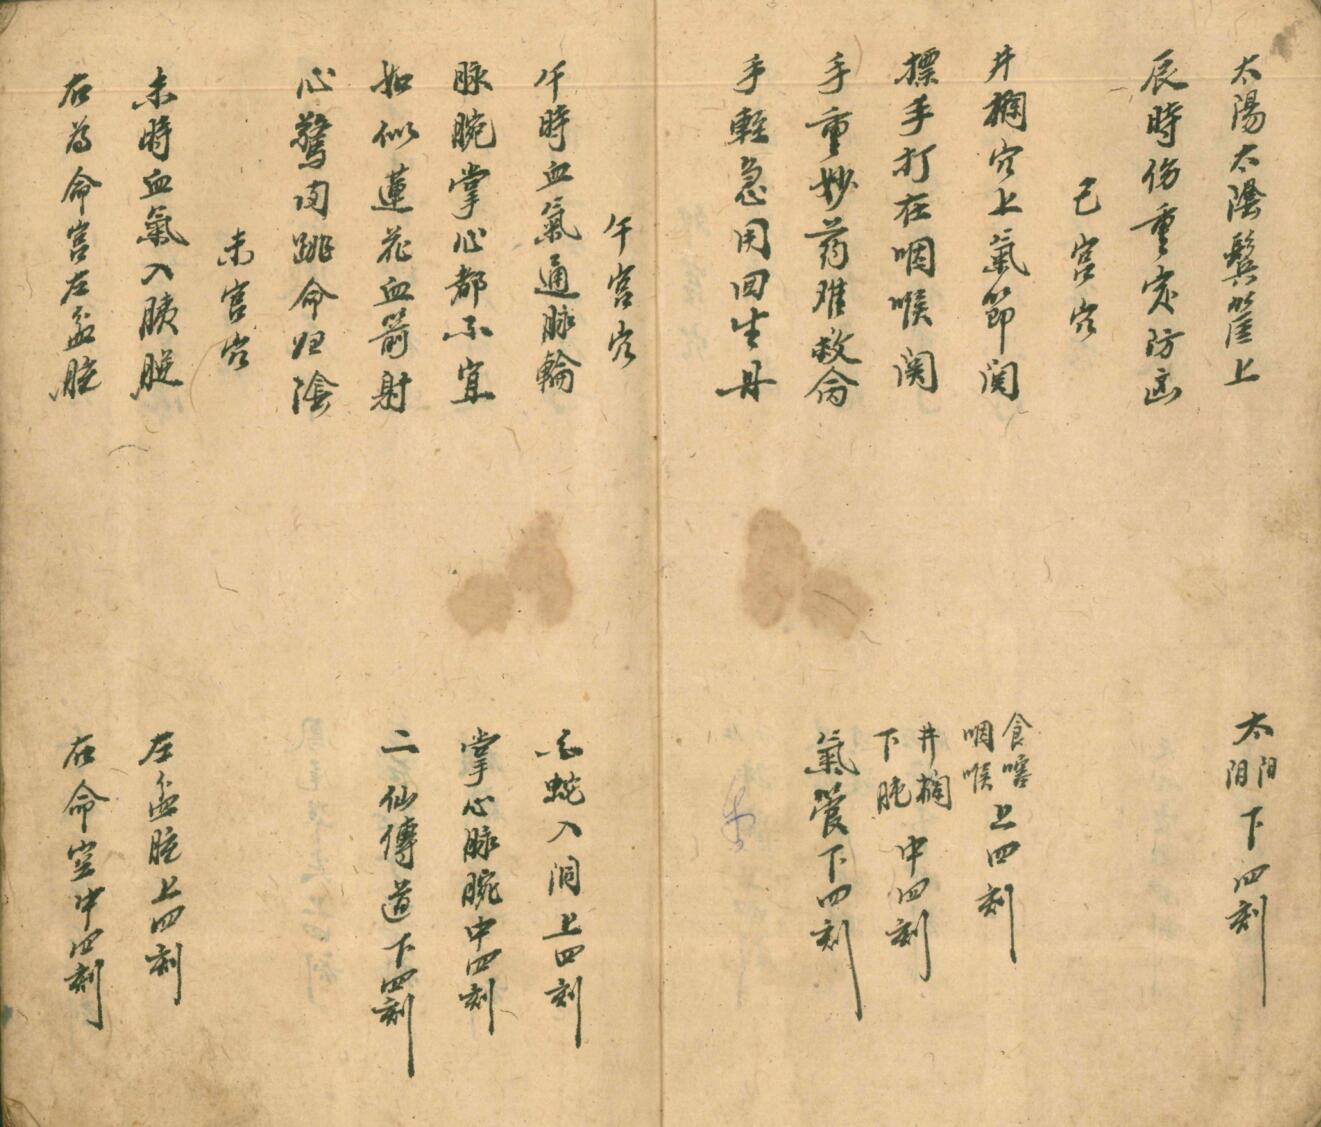 太陽太陰鬓管上
辰時伤重定防凶
巳宫穴
井欄穴上氣節関
標手打在咽喉関
手重妙药难救命
手輕急用回生丹
午宫穴
午時血氣通脉輪
脉腕掌心都不宜
如似蓮花血箭射
心驚肉跳命归陰
未宫穴
未時血氣入胰腿
右為命宫左盆腔
太阳阴下四刻
食嗒咽喉上四刻
井欄下腌中四刻
氣管下四刻
白蛇入洞上四刻
掌心脉腕中四刻
二仙傳道下四刻
左盆腔上四刻
右命空中四刻